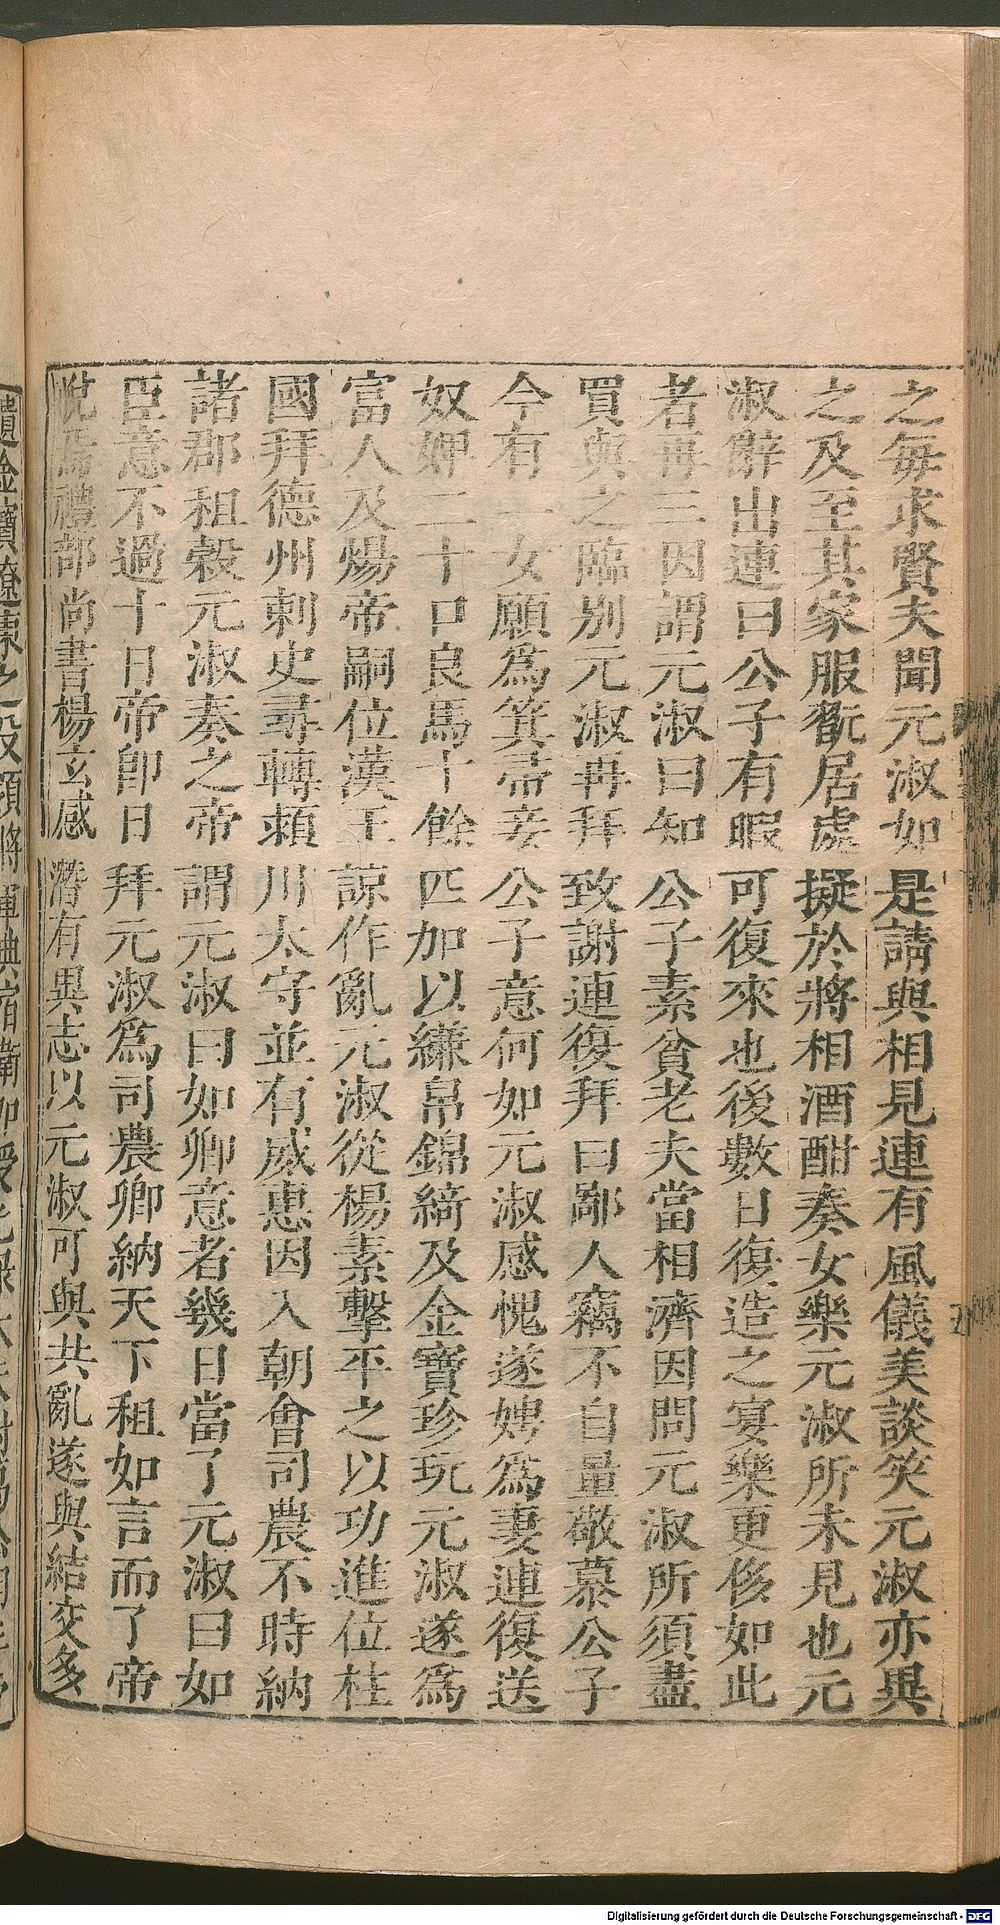 之每求賢夫聞元淑如是請與相見連有風儀美談笑元淑亦異
之及至其家服翫居處擬於將相酒酣奏女樂元淑所未見也元
淑辭出連曰公子有暇可復來也後數日復造之宴樂更侈如此
者再三因謂元淑曰知公子素貧老夫當相濟因問元淑所須盡
買與之臨別元淑再拜致謝連復拜曰鄙人竊不自量敬慕公子
今有一女願爲箕帚妾公子意何如元淑感愧遂娉爲妻連復送
奴婢二十口良馬十餘匹加以縑帛錦綺及金寶珍玩元淑遂爲
富人及煬帝嗣位漢王諒作亂元淑從楊素擊平之以功進位柱
國拜德州刺史尋轉潁川太守並有威惠因入朝會司農不時納
諸郡租穀元淑奏之帝謂元淑曰如卿意者幾日當了元淑曰如
臣意不過十日帝卽日拜元淑爲司農卿納天下租如言而了帝
悅焉禮部尚書楊玄感潛有異志以元淑可與共亂遂與結交多
Digitalisierung gefördert durch die Deutsche Forschungsgemeinschaft - DFG